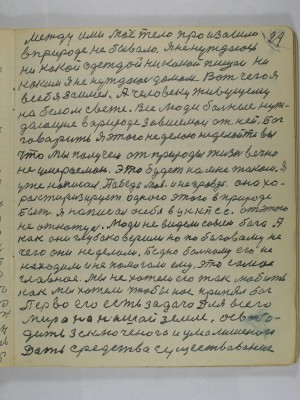 29
Между ими моё тело произошло
в природе не бывало. Я не нуждаюсь
ни какой одеждой никакой пищей ни
каким я не нуждаюсь домом. Вот чего я
в себя занял. А человеку живущему
на белом свете. Все люди больные нуж
дающие в природе зависимои от неё. Бог
говорить я этого не делаю
что мы получем от природы жизнь вечно
не умераемаи. Это будет на мне таком. Я
уже написал Победа моя. и на
рактиризирует одного этого в природе
быть. Я написал себя в от этого
не откажуся. Люди не видели совсем бога а
как они глубоко верили но по богавому не
чего они не делали. Бедно больному его не
находили и не помогали ему. Это самое
главное. Мы не хотели его так любить
как мы хотели чтобы нас принял бог
Перво его есть задача для всего
мира на нашай земле, освобо
дить заключеного и умалишоного
Дать средства существавание